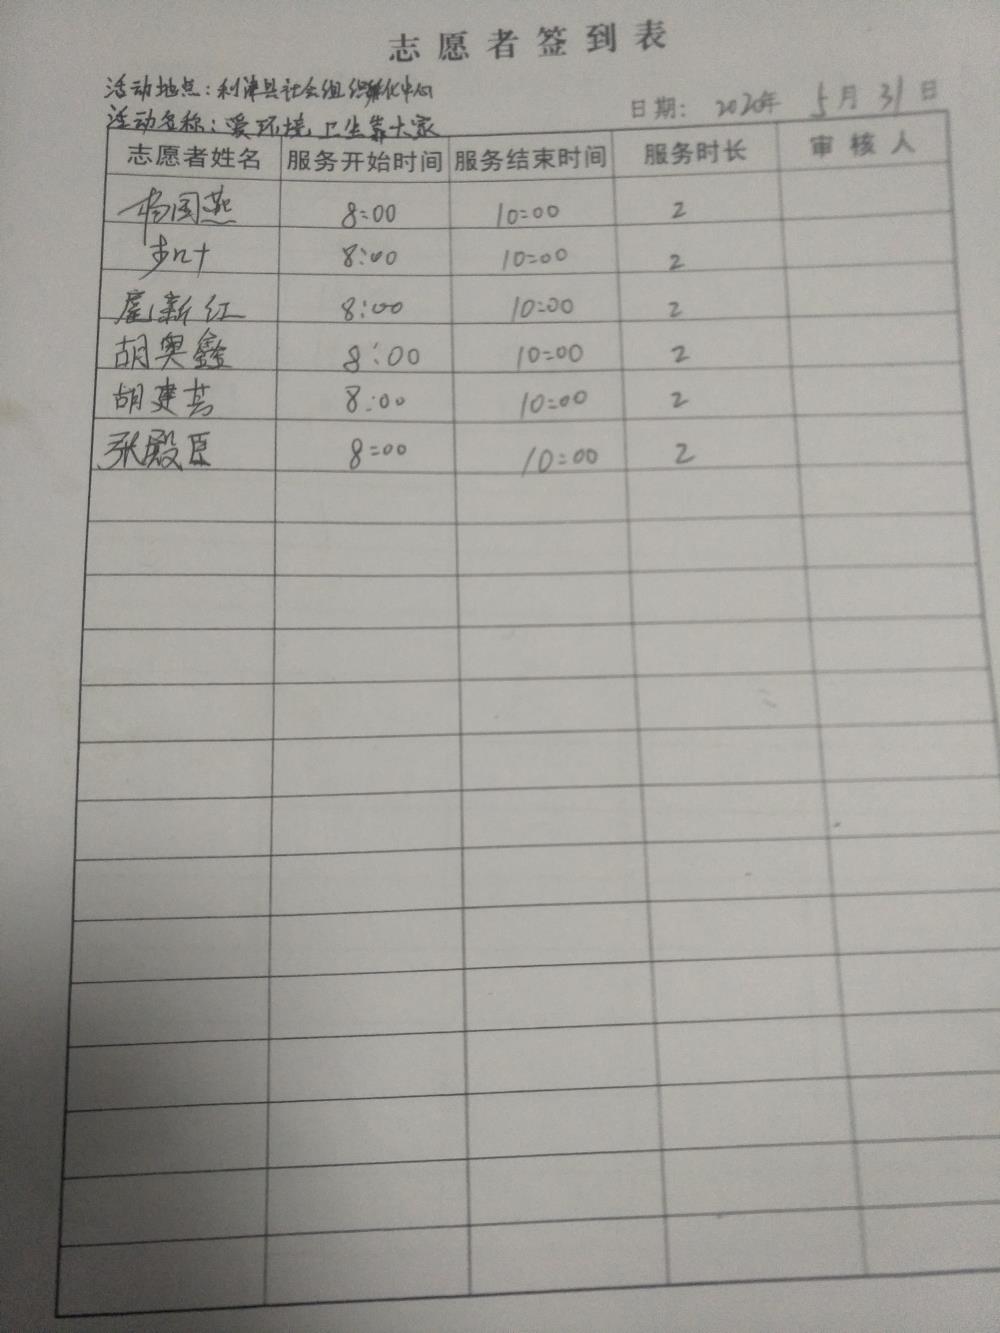 志愿者签到表
活动地点：利津县社会组织孵化中心
日期： 2020年 5月 31日
活动名称：爱环境，卫生靠大家
志愿者姓名 服务开始时间 服务结束时间 服务时长 审核人
杨国燕 8:00 10:00 2
8:00 10:00 2
扈新红 8:00 10:00 2
胡奥鑫 8:00 10:00 2
胡建 8:00 10:00 2
张殿臣 8:00 10:00 2